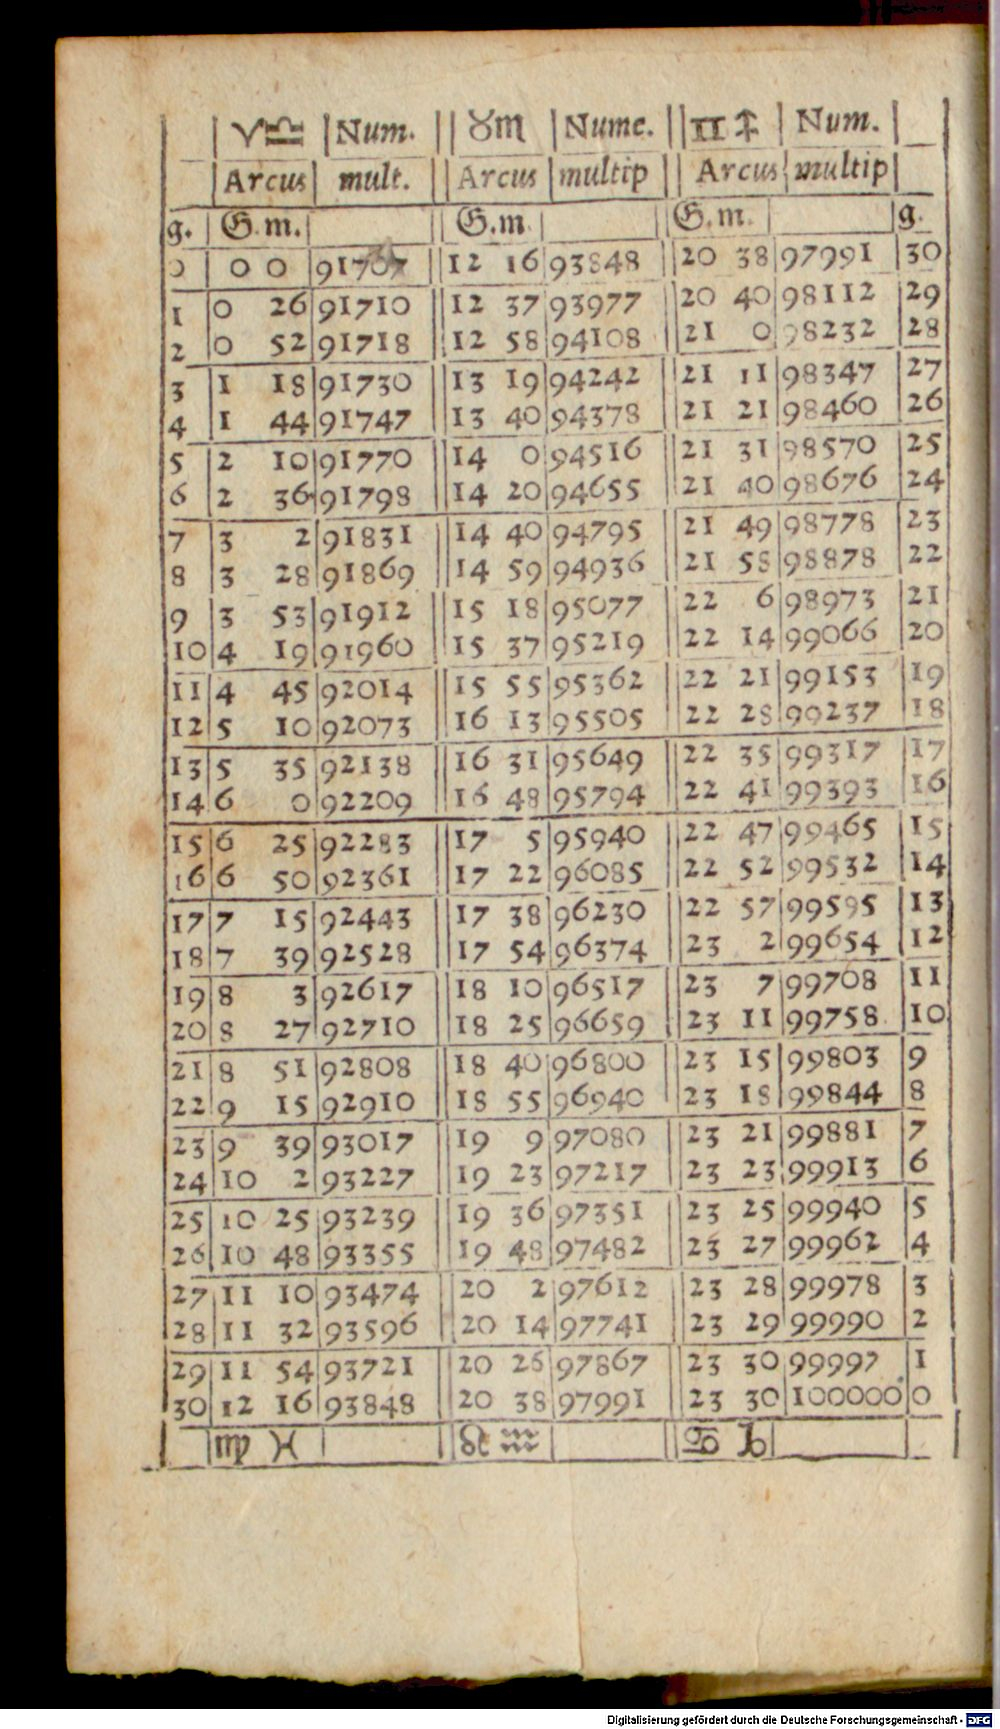 ♈♎ Num. ♉♏ Nume. ♊♐ Num.
Arcus mult. Arcus multip Arcus multip
g. G.m. G.m. G.m. g.
0 0 0 91707 12 16 93848 20 38 97991 30
1 0 26 91710 12 37 93977 20 40 98112 29
2 0 52 91718 12 58 94108 21 0 98232 28
3 1 18 91730 13 19 94242 21 11 98347 27
4 1 44 91747 13 40 94378 21 21 98460 26
5 2 10 91770 14 0 94516 21 31 98570 25
6 2 36 91798 14 20 94655 21 40 98676 24
7 3 2 91831 14 40 94795 21 49 98778 23
8 3 28 91869 14 59 94936 21 58 98878 22
9 3 53 91912 15 18 95077 22 6 98973 21
10 4 19 91960 15 37 95219 22 14 99066 20
11 4 45 92014 15 55 95362 22 21 99153 19
12 5 10 92073 16 13 95505 22 28 99237 18
13 5 35 92138 16 31 95649 22 35 99317 17
14 6 0 92209 16 48 95794 22 41 99393 16
15 6 25 92283 17 5 95940 22 47 99465 15
16 6 50 92361 17 22 96085 22 52 99532 14
17 7 15 92443 17 38 96230 22 57 99595 13
18 7 39 92528 17 54 96374 23 2 99654 12
19 8 3 92617 18 10 96517 23 7 99708 11
20 8 27 92710 18 25 96659 23 11 99758 10
21 8 51 92808 18 40 96800 23 15 99803 9
22 9 15 92910 18 55 96940 23 18 99844 8
23 9 39 93017 19 9 97080 23 21 99881 7
24 10 2 93227 19 23 97217 23 23 99913 6
25 10 25 93239 19 36 97351 23 25 99940 5
26 10 48 93355 19 48 97482 23 27 99962 4
27 11 10 93474 20 2 97612 23 28 99978 3
28 11 32 93596 20 14 97741 23 29 99990 2
29 11 54 93721 20 26 97867 23 30 99997 1
30 12 16 93848 20 38 97991 23 30 100000 0
♍ ♓ ♌ ♒ ♋ ♑
Digitalisierung gefördert durch die Deutsche Forschungsgemeinschaft - DFG